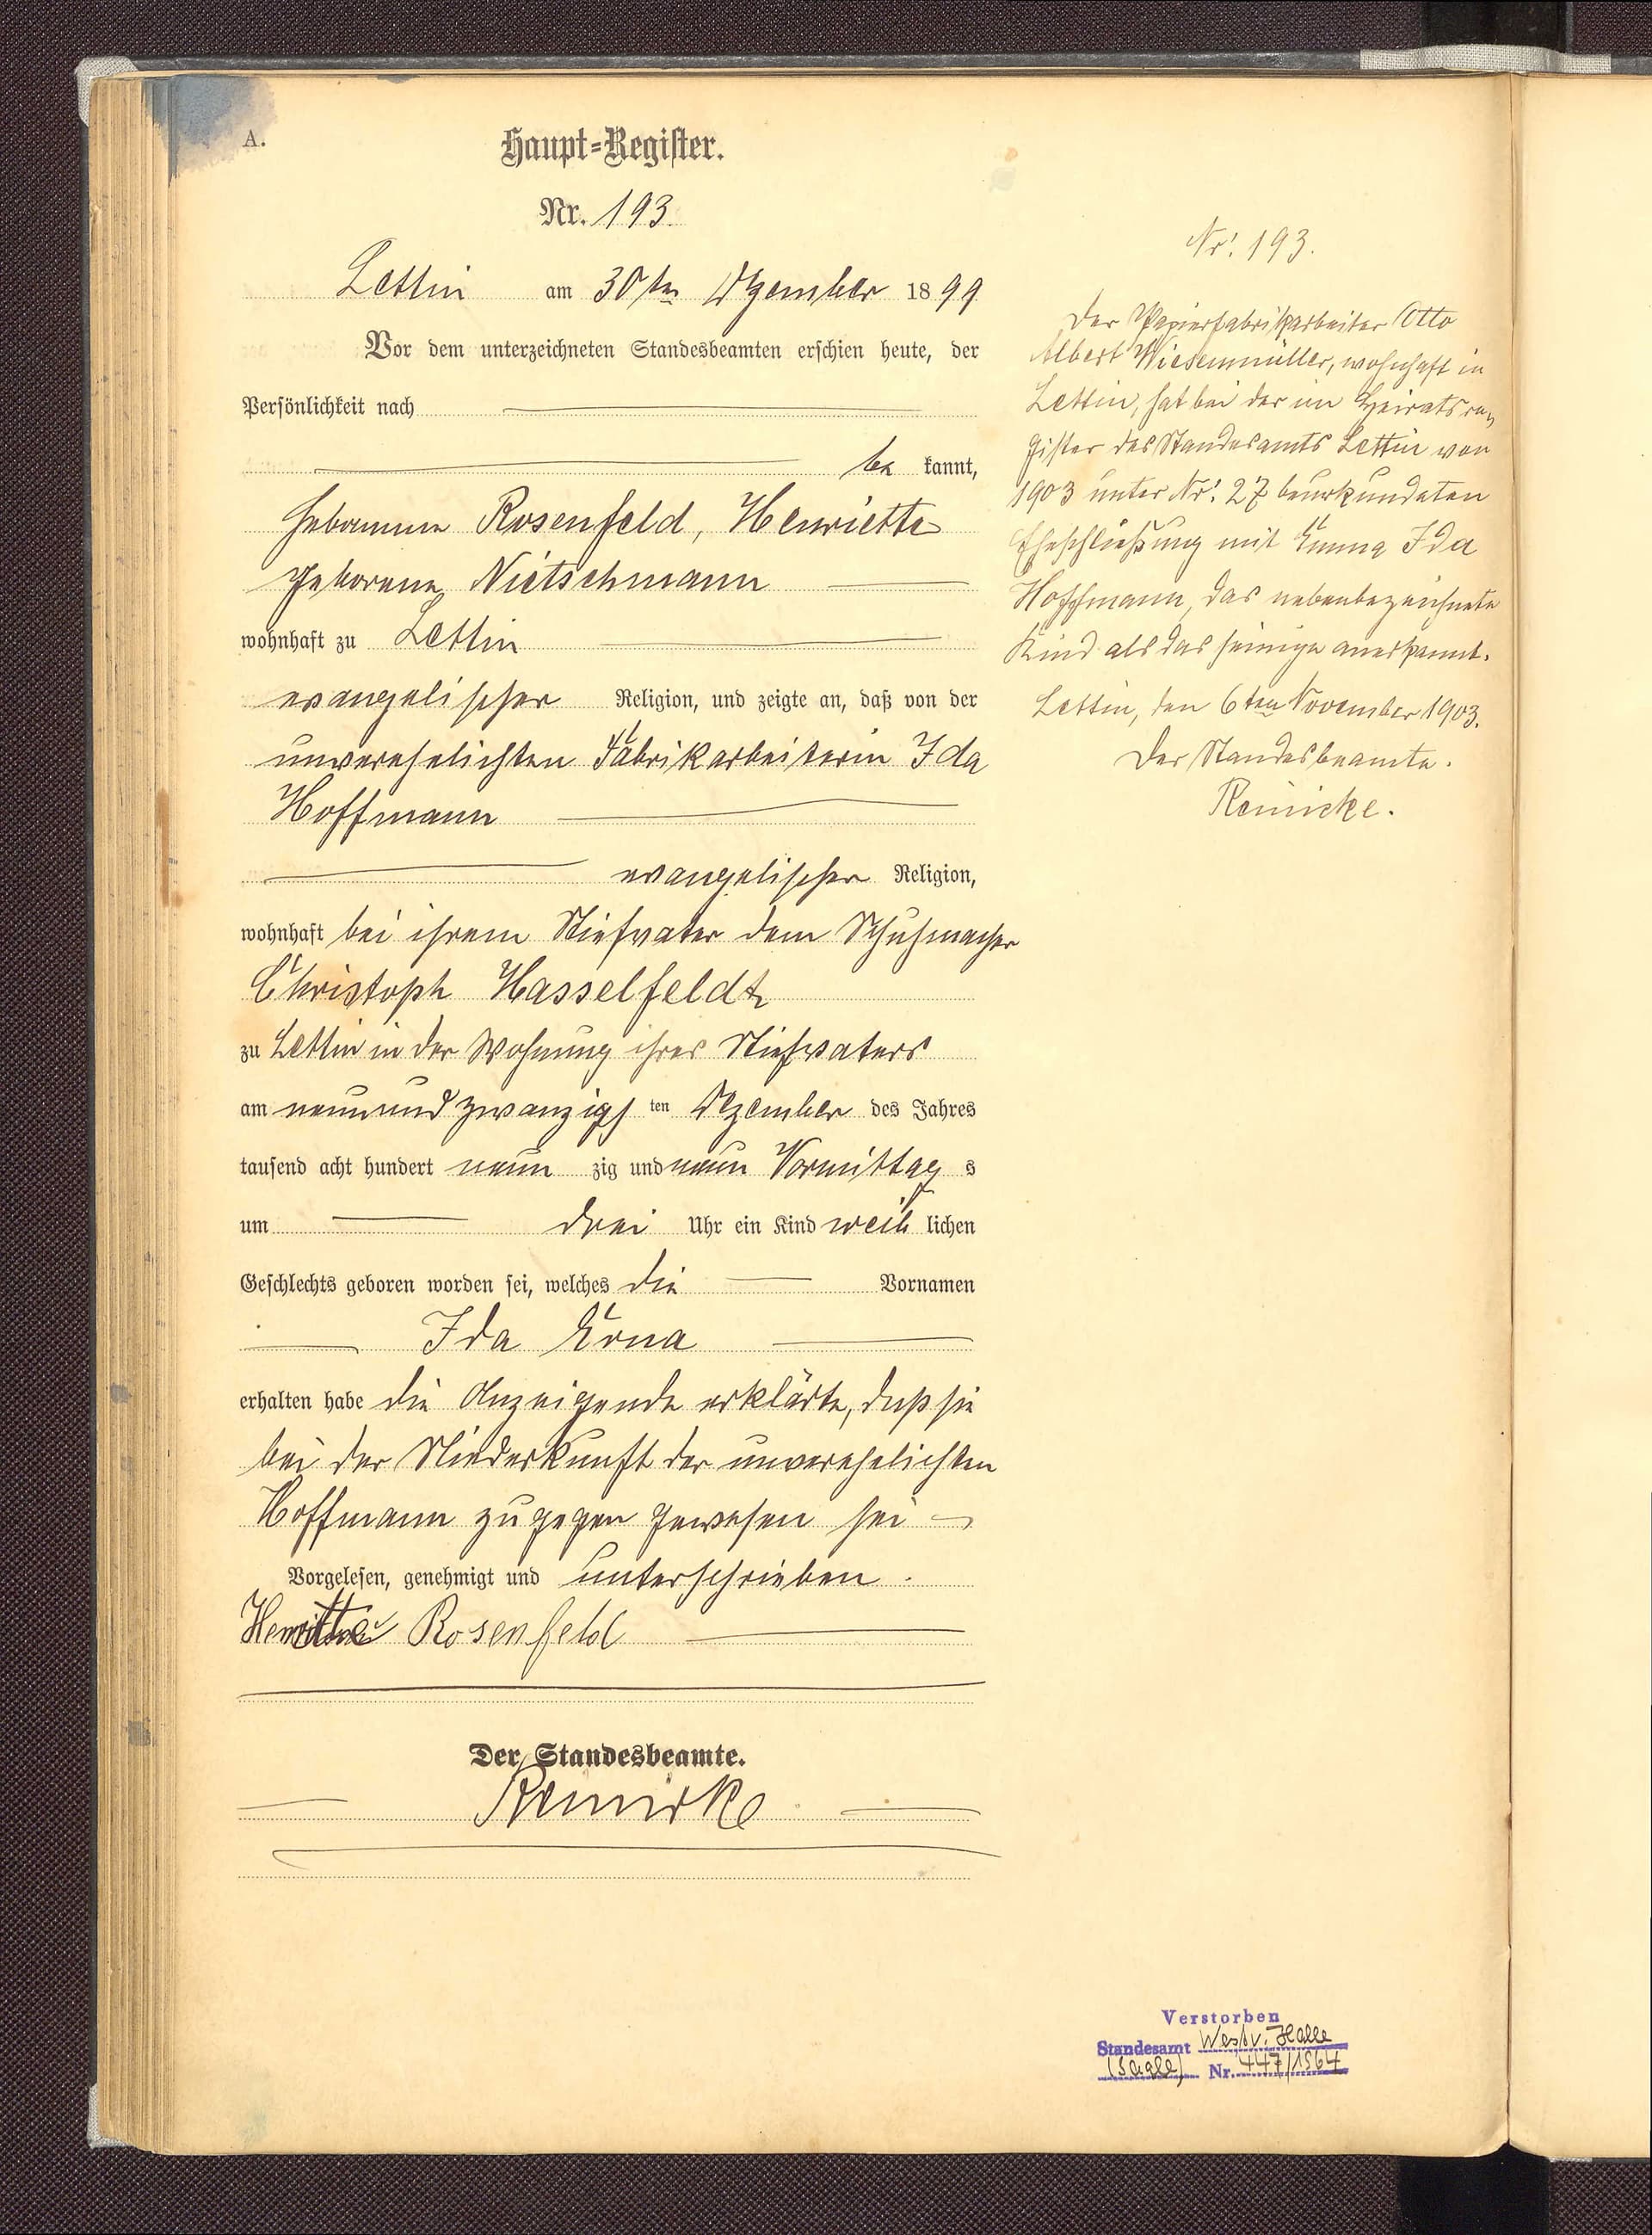 A.
Haupt-Register.
Nr. 193.
Lettin am 30ten Dezember 1899
Vor dem unterzeichneten Standesbeamten erschien heute, der
Persönlichkeit nach
be kannt,
Hebamme Rosenfeld, Henriette
geborene Nietschmann
wohnhaft zu Lettin
evangelischer Religion, und zeigte an, daß von der
unverehelichten Fabrikarbeiterin Ida
Hoffmann
evangelischer Religion,
wohnhaft bei ihrem Stiefvater dem Schuhmacher
Christoph Hasselfeldt
zu Lettin in der Wohnung ihres Stiefvaters
am neunundzwanzigsten Dezember des Jahres
tausend acht hundert neunzig und neun Vormittags
um drei Uhr ein Kind weiblichen
Geschlechts geboren worden sei, welches die Vornamen
Ida Erna
erhalten habe die Anzeigende erklärte, daß sie
bei der Niederkunft der unverehelichten
Hoffmann zugegen gewesen sei
Vorgelesen, genehmigt und unterschrieben.
Henriette Rosenfeld
Der Standesbeamte.
Reinicke
Nr. 193.
Der Papierfabrikarbeiter Otto
Albert Wiesenmüller, wohnhaft in
Lettin, hat bei der im Heiratsre-
gister des Standesamts Lettin von
1903 unter Nr. 27 beurkundeten
Eheschließung mit Emma Ida
Hoffmann, das nebenbezeichnete
Kind als das seinige anerkannt.
Lettin, den 6ten November 1903.
Der Standesbeamte.
Reinicke.
Verstorben
Standesamt West v. Halle
(Saale) Nr. 447/1964